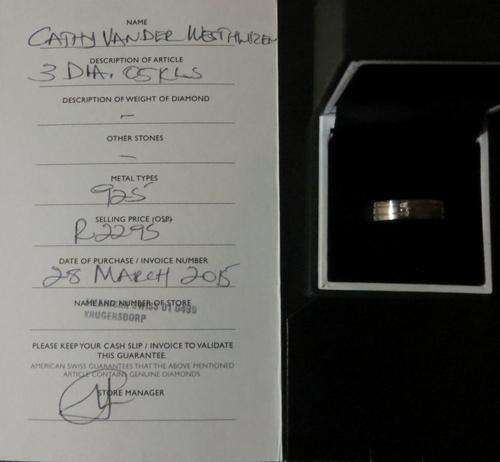 NAME
CATHY VANDER WESTHUIZEN
DESCRIPTION OF ARTICLE
3 DIA. 05KLS
DESCRIPTION OF WEIGHT OF DIAMOND
-
OTHER STONES
-
METAL TYPES
925
SELLING PRICE (OSP)
R2295
DATE OF PURCHASE / INVOICE NUMBER
28 MARCH 2015
NAME AND NUMBER OF STORE
SWISS
KRUGERSDORP
PLEASE KEEP YOUR CASH SLIP / INVOICE TO VALIDATE
THIS GUARANTEE.
AMERICAN SWISS GUARANTEES THAT THE ABOVE MENTIONED
ARTICLE CONTAINS GENUINE DIAMONDS
STORE MANAGER